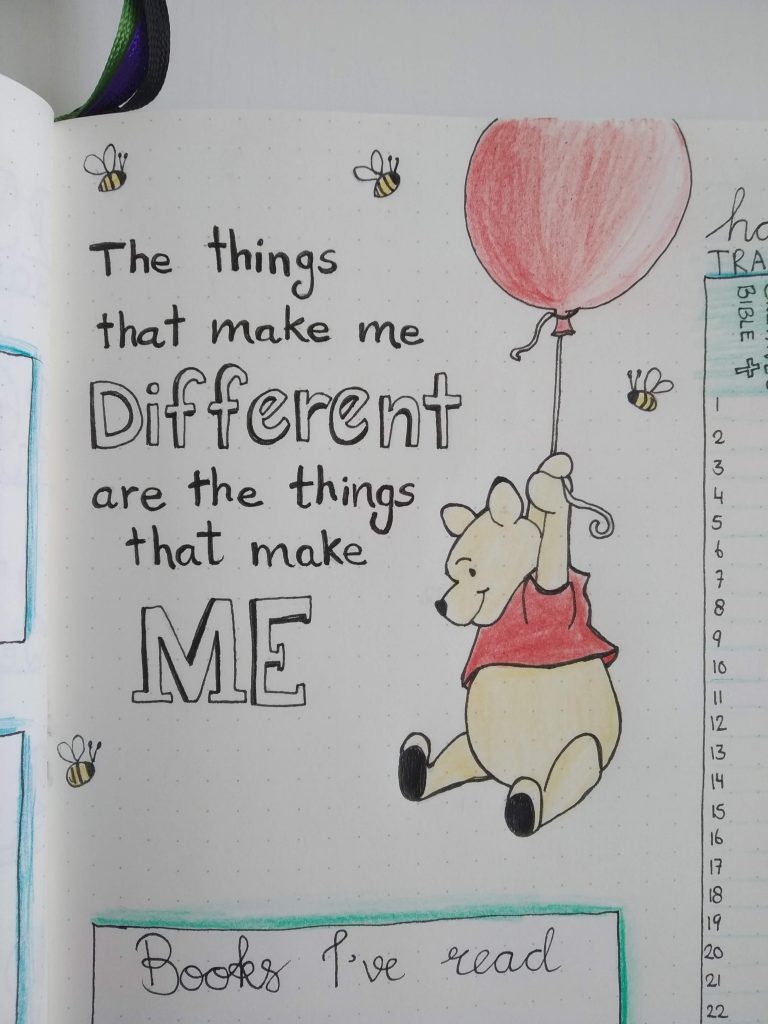 The things
that make me
Different
are the things
that make
ME
Books I've read
TRA
BIBLE
1
2
3
4
5
6
7
8
9
10
11
12
13
14
15
16
17
18
19
20
21
22